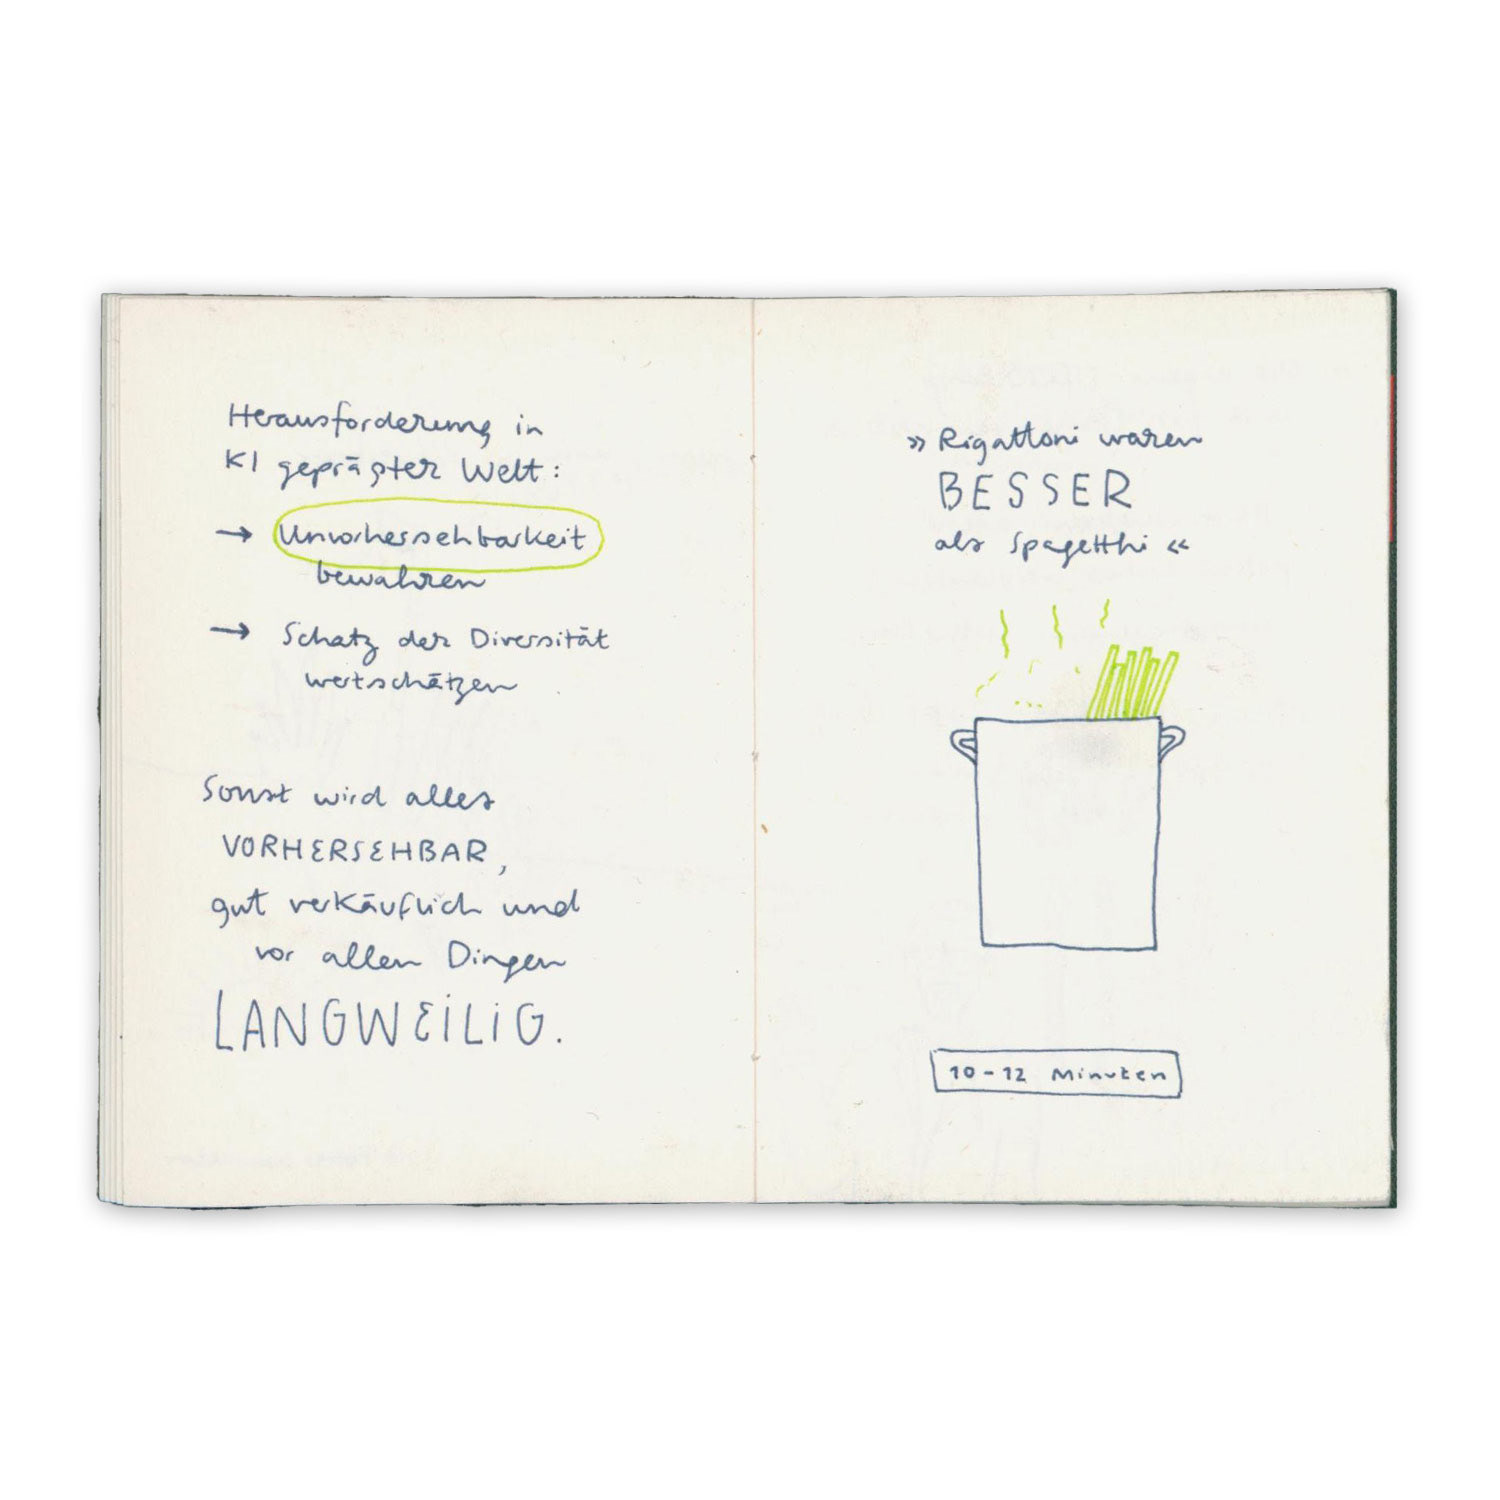 Herausforderung in
KI geprägter Welt:
→ Unvorhersehbarkeit
bewahren
→ Schatz der Diversität
wertschätzen
Sonst wird alles
VORHERSEHBAR,
gut verkäuflich und
vor allen Dingen
LANGWEILIG.
» Rigattoni waren
BESSER
als Spagetthi «
10-12 Minuten